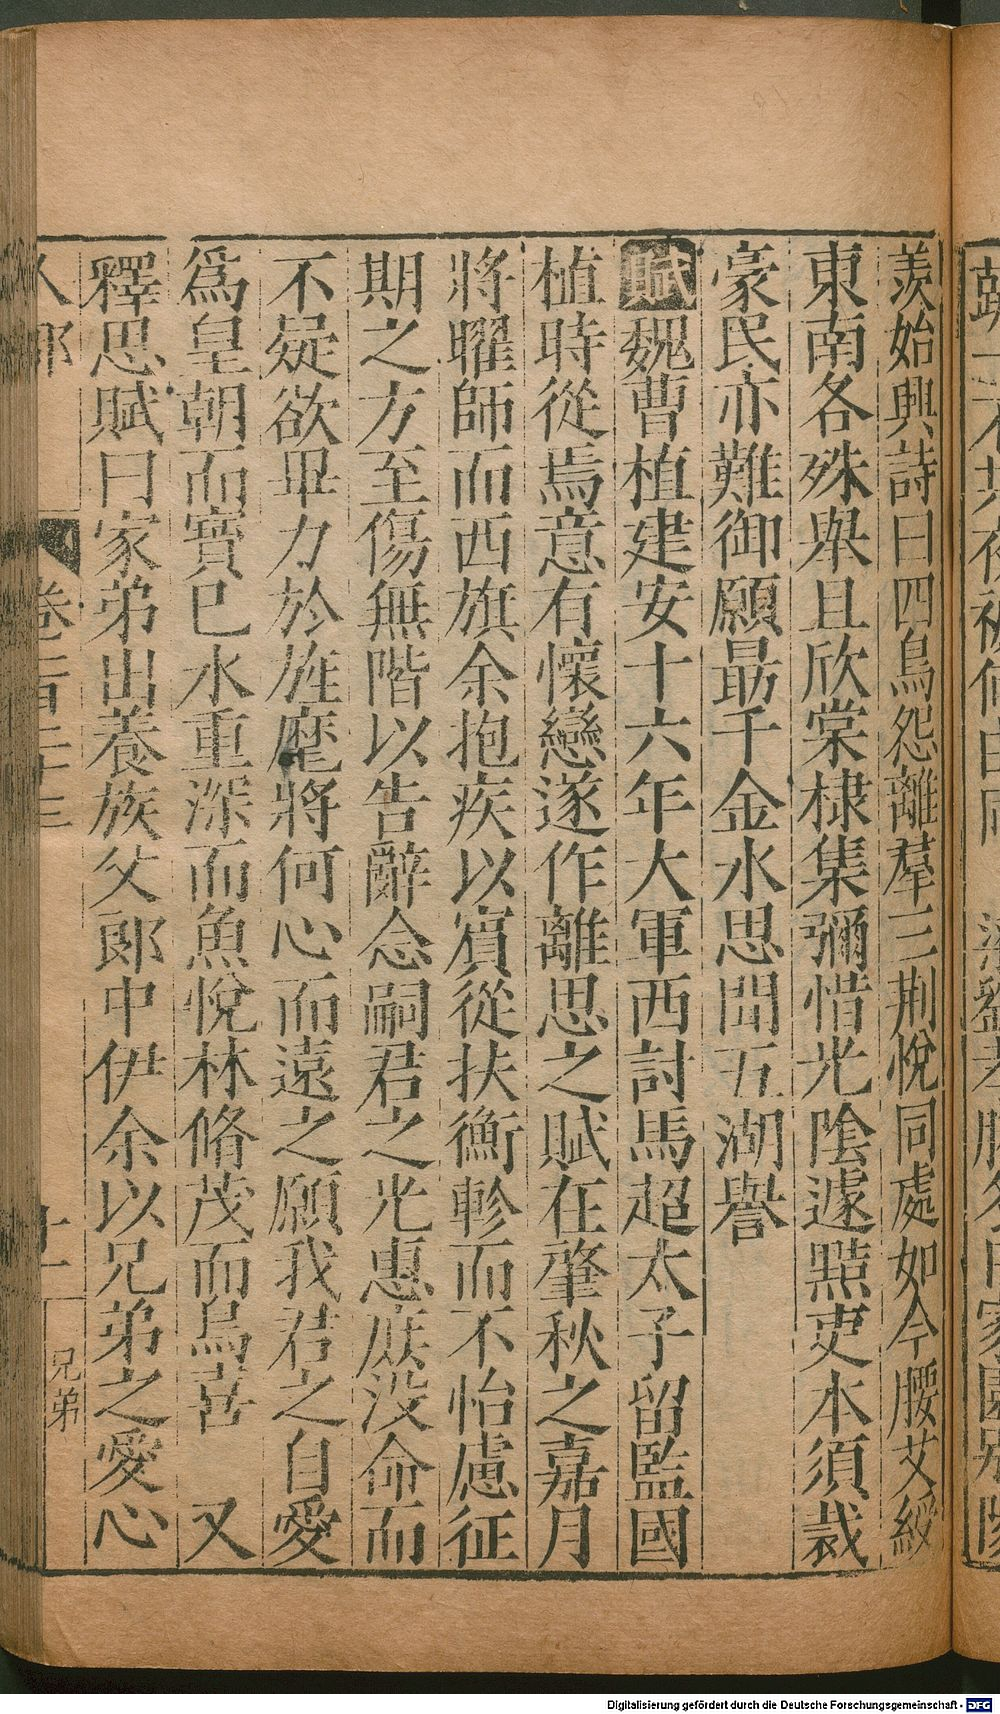 羨始興詩曰四鳥怨離羣三荆悅同處如今腰艾綬
東南各殊舉且欣棠棣集彌惜光陰遽黠吏本須裁
豪民亦難御願最千金水思聞五湖譽
賦魏曹植建安十六年大軍西討馬超太子留監國
植時從焉意有懷戀遂作離思之賦在肇秋之嘉月
將曜師而西旗余抱疾以賓從扶衡軫而不怡慮征
期之方至傷無階以告辭念嗣君之光惠庶没命而
不疑欲畢力於旌麾將何心而遠之願我君之自愛
爲皇朝而寶已水重深而魚悅林脩茂而鳥喜 又
釋思賦曰家弟出養族父郎中伊余以兄弟之愛心
人部 卷二百二十三 十一 兄弟
Digitalisierung gefördert durch die Deutsche Forschungsgemeinschaft - DFG